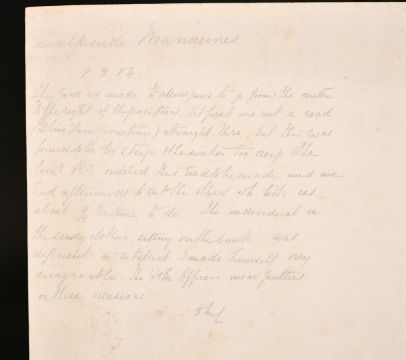 Manœuvres.
8 2 84
The road we made to allow guns to go from the centre
to the right of the position. At first we cut a road
straight thro, but this was
found to be too steep & the water too deep. The
Com'g R.E. ordered this road to be made and we
had afterwards to cut the other wh took us
about the time to do. The individual in
the seedy clothes sitting on the bank was
deficient in intellect & made himself very
disagreeable. The Officers wear putties
on these occasions